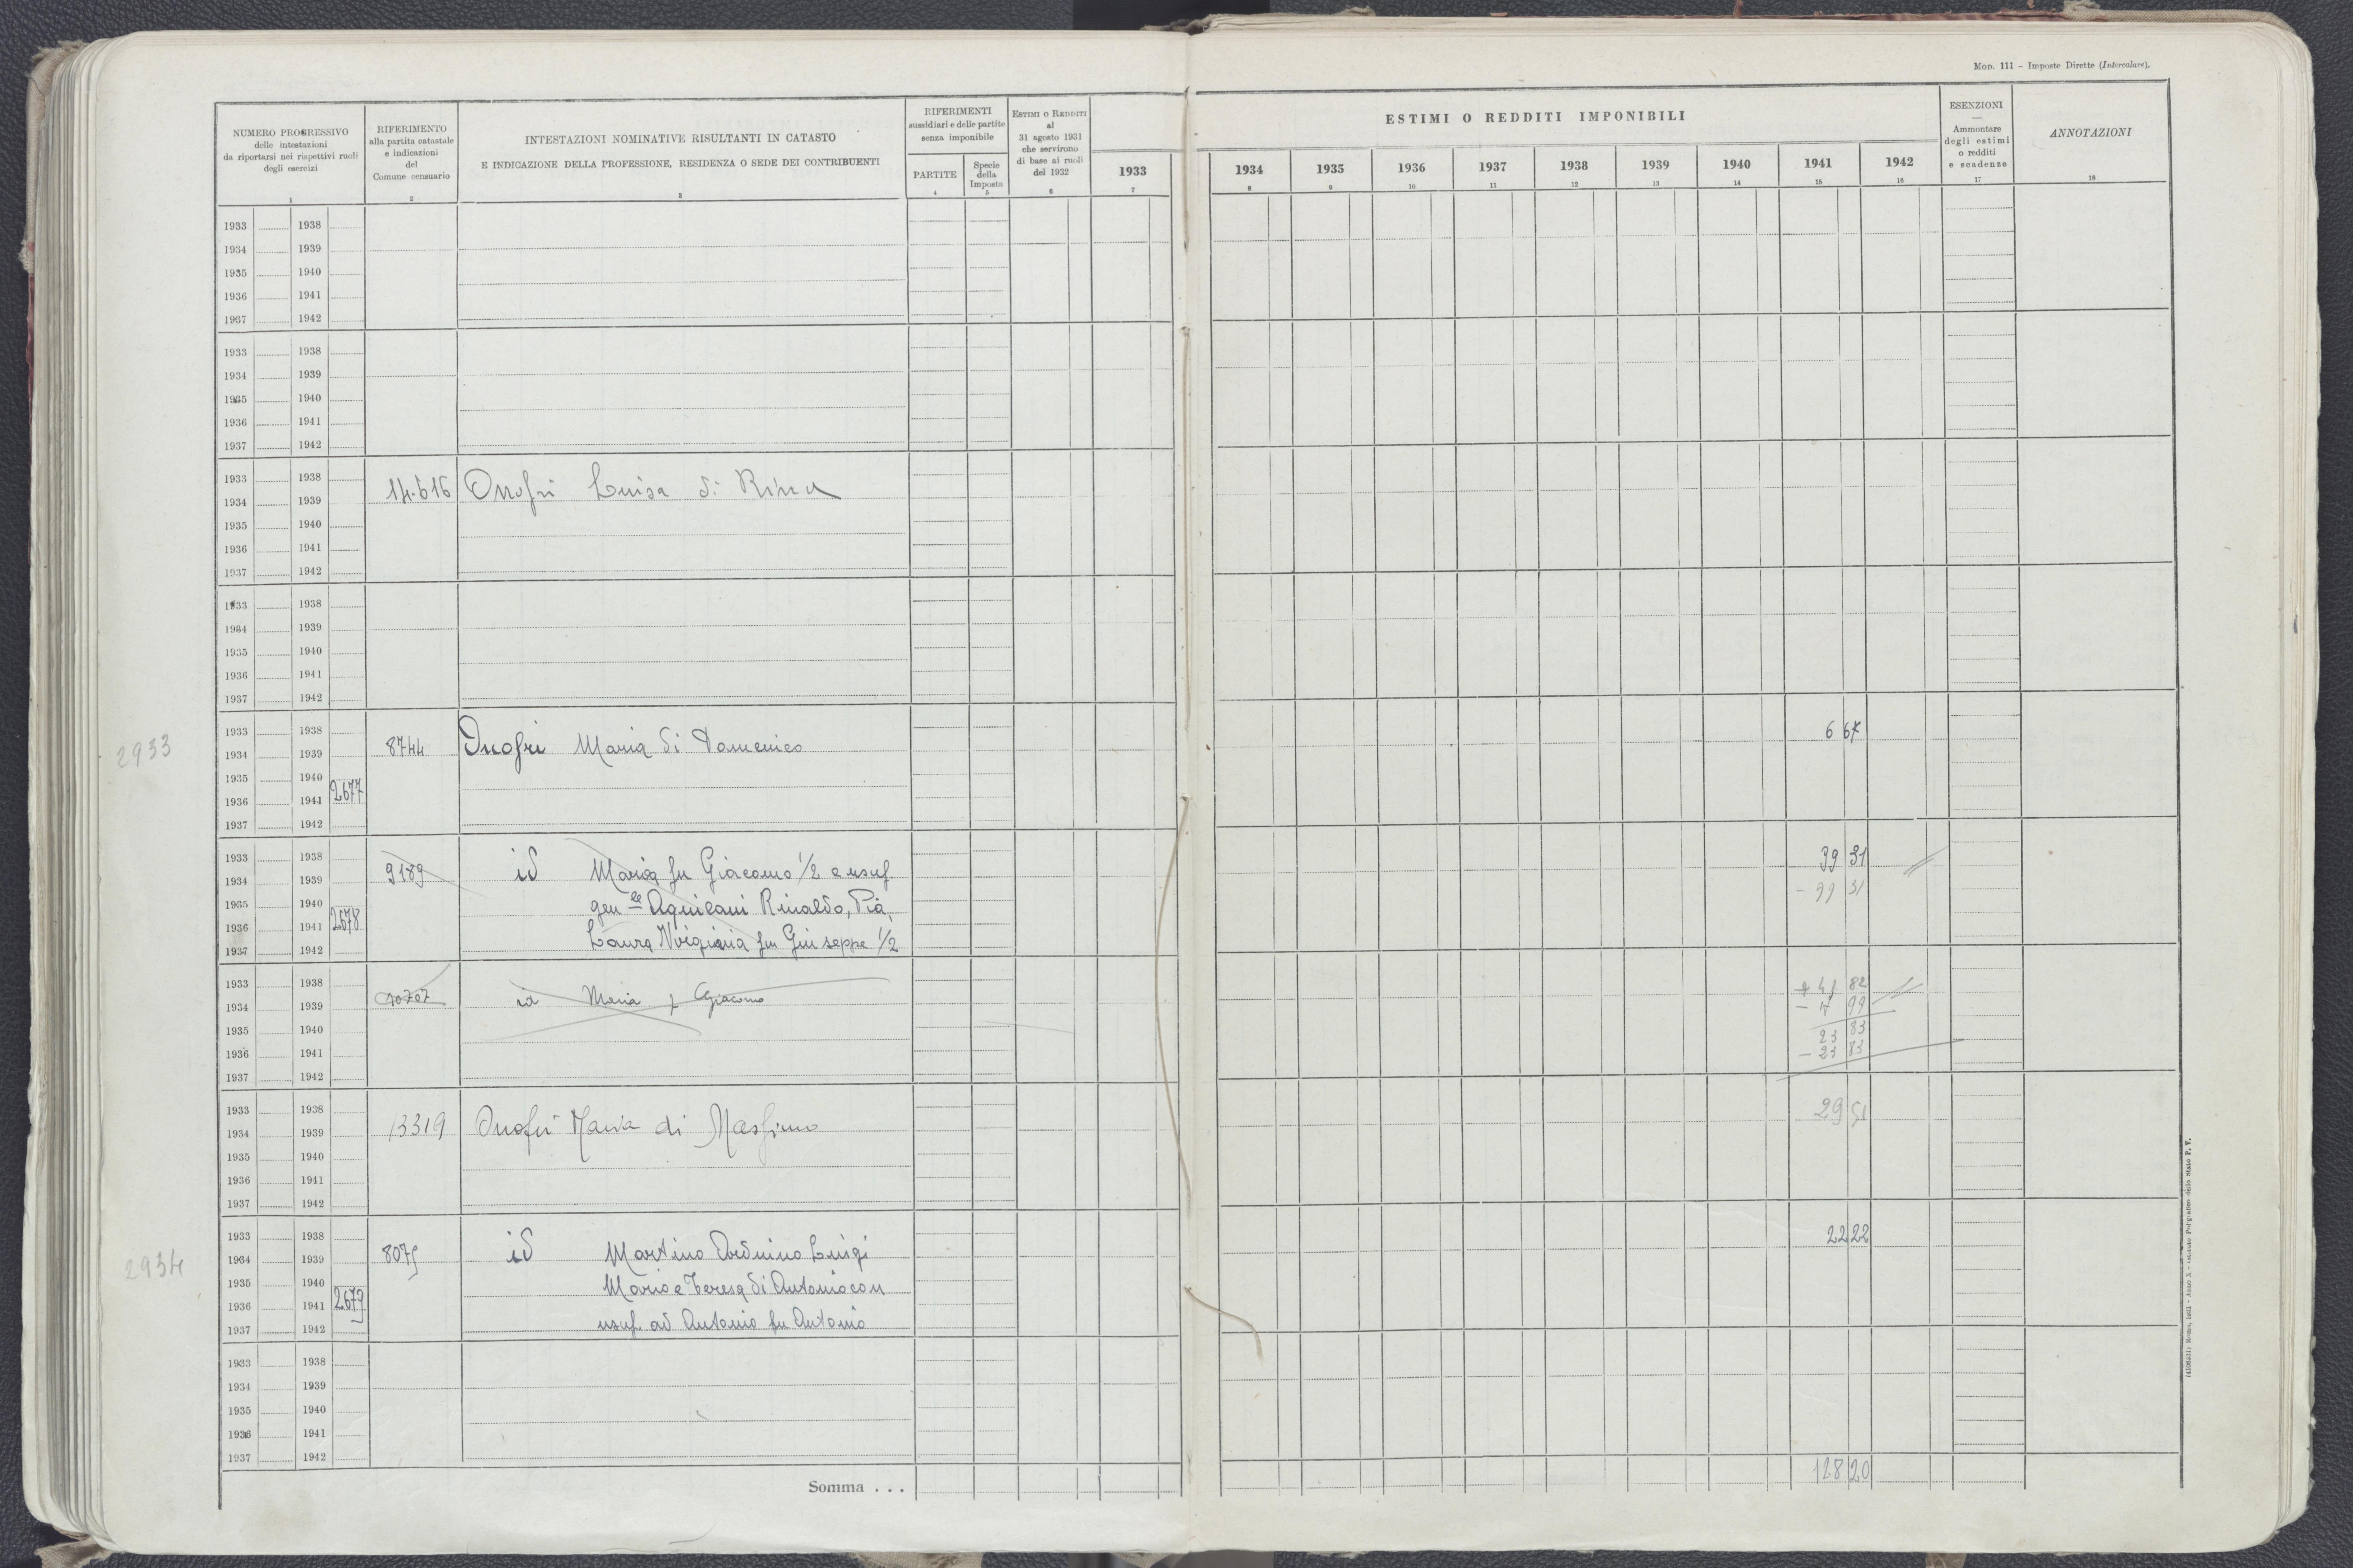 Mod. 111 - Imposte Dirette (Intercalare).
NUMERO PROGRESSIVO
delle intestazioni
da riportarsi nei rispettivi ruoli
degli esercizi
1
RIFERIMENTO
alla partita catastale
e indicazioni
del
Comune censuario
2
INTESTAZIONI NOMINATIVE RISULTANTI IN CATASTO
E INDICAZIONE DELLA PROFESSIONE, RESIDENZA O SEDE DEI CONTRIBUENTI
3
RIFERIMENTI
sussidiari e delle partite
senza imponibile
PARTITE
4
Specie
della
Imposta
5
ESTIMI O REDDITI
al
31 agosto 1931
che servirono
di base ai ruoli
del 1932
6
1933
7
ESTIMI O REDDITI IMPONIBILI
1934 1935 1936 1937 1938 1939 1940 1941 1942
8 9 10 11 12 13 14 15 16
ESENZIONI
—
Ammontare
degli estimi
o redditi
e scadenze
17
ANNOTAZIONI
18
1933 1938
1934 1939
1935 1940
1936 1941
1937 1942
1933 1938
1934 1939
1935 1940
1936 1941
1937 1942
1933 1938
1934 1939 14.616 Onofri Luisa di Rina
1935 1940
1936 1941
1937 1942
1933 1938
1934 1939
1935 1940
1936 1941
1937 1942
1933 1938 6 67
2933 1934 1939 8744 Onofri Maria di Domenico
1935 1940
1936 1941 2677
1937 1942
1933 1938 39 31
1934 1939 9189 id Maria fu Giacomo 1/2 e usuf
1935 1940 gen le Aquilani Rinaldo, Pia,
1936 1941 2678
1937 1942 Laura Virginia fu Giuseppe 1/2
1933 1938 + 41 82
1934 1939 id Maria f Giacomo
1935 1940 23 83
1936 1941 - 23 83
1937 1942
1933 1938 29 51
1934 1939 13319 Onofri Maria di Massimo
1935 1940
1936 1941
1937 1942
1933 1938 22 22
2934 1934 1939 8075 id Martino Arduino Luigi
1935 1940 Mario e Teresa di Antonio con
1936 1941 2679
1937 1942 usuf. ad Antonio fu Antonio
1933 1938
1934 1939
1935 1940
1936 1941
1937 1942
Somma . . . 128 20